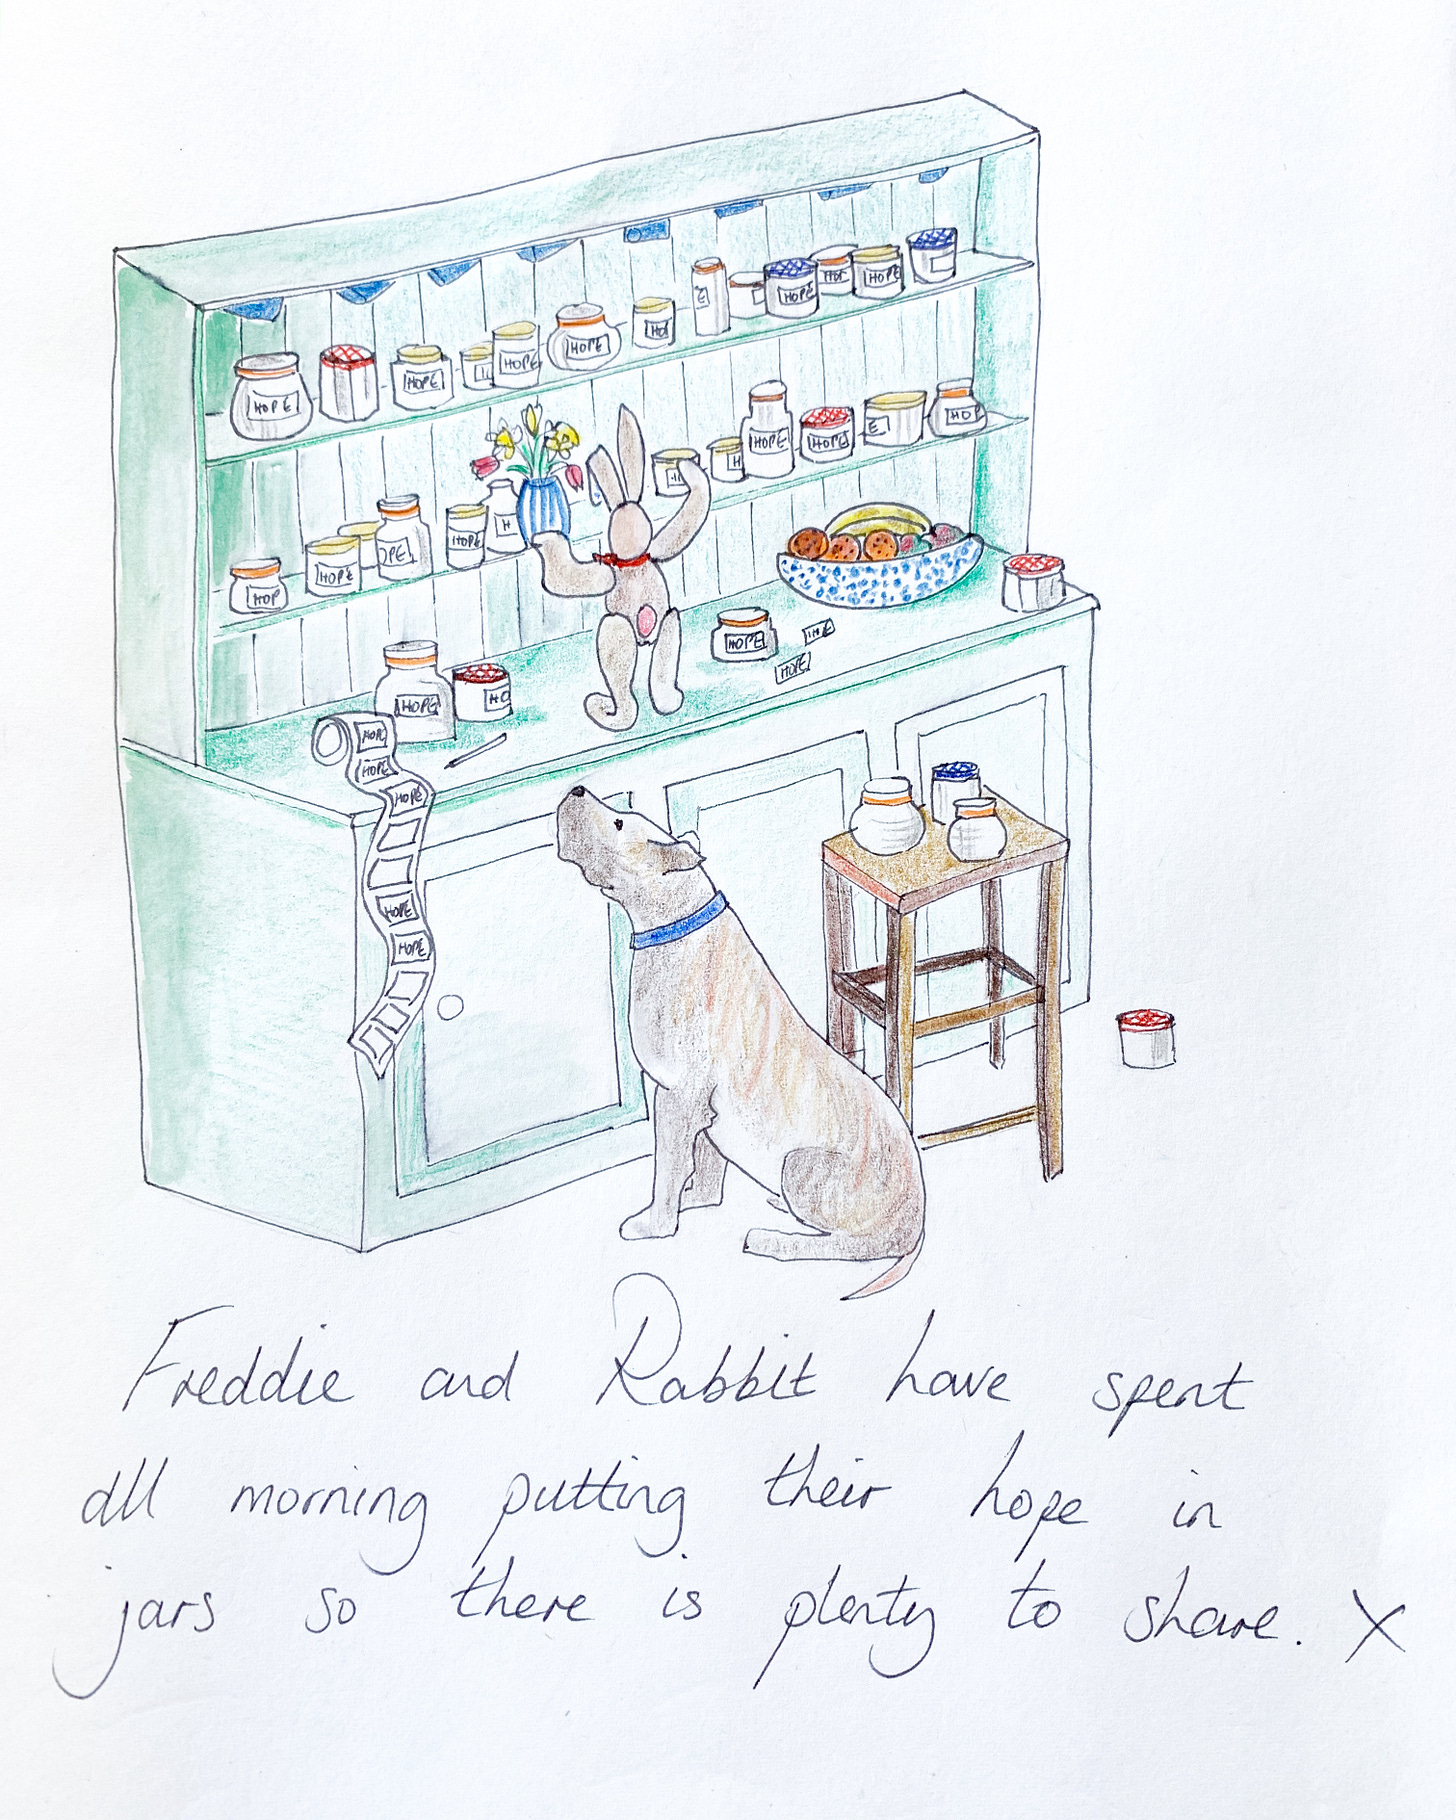 HOPE
HOPE
HOPE
HOPE
HO
E
HOPE
HOP
HOPE
HOP
HOPE
OPE
HOPE
H
H
HOPE
HOPE
E
HOP
HOPE
HO
HOPE
HOPE
HOPE
HOPE
HOPE
HOPE
HOPE
Freddie and Rabbit have spent
all morning putting their hope in
jars so there is plenty to share. X